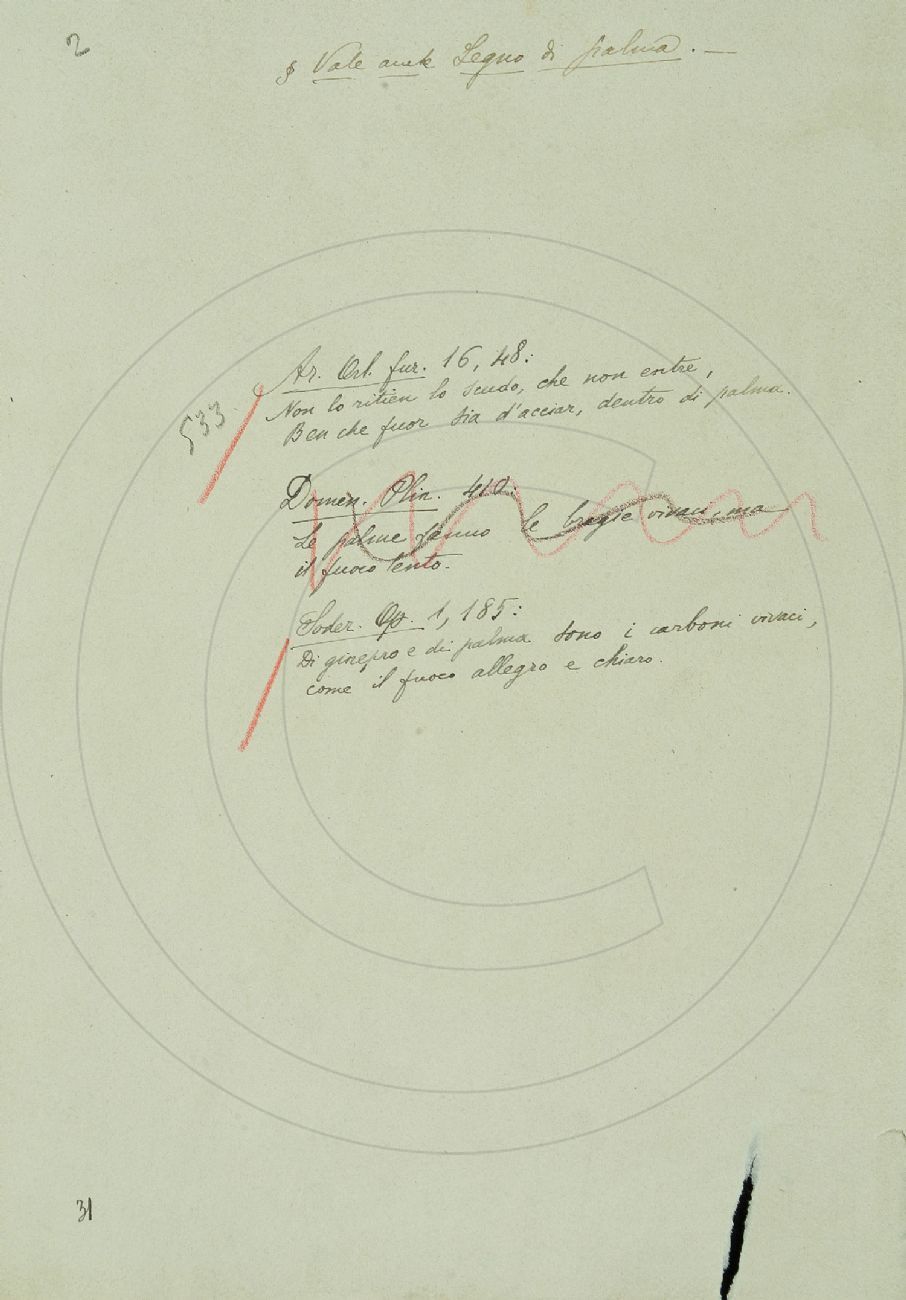 2
§ Vale anche Legno di palma. —
533
Ar. Orl. fur. 16, 48:
Non lo ritien lo scudo, che non entre,
Ben che fuor sia d'acciar, dentro di palma.
Domen. Plin. 410:
Le palme fanno le bragie vivaci, ma
il fuoco lento.
Soder. Op. 1, 185:
Di ginepro e di palma sono i carboni vivaci,
come il fuoco allegro e chiaro.
31